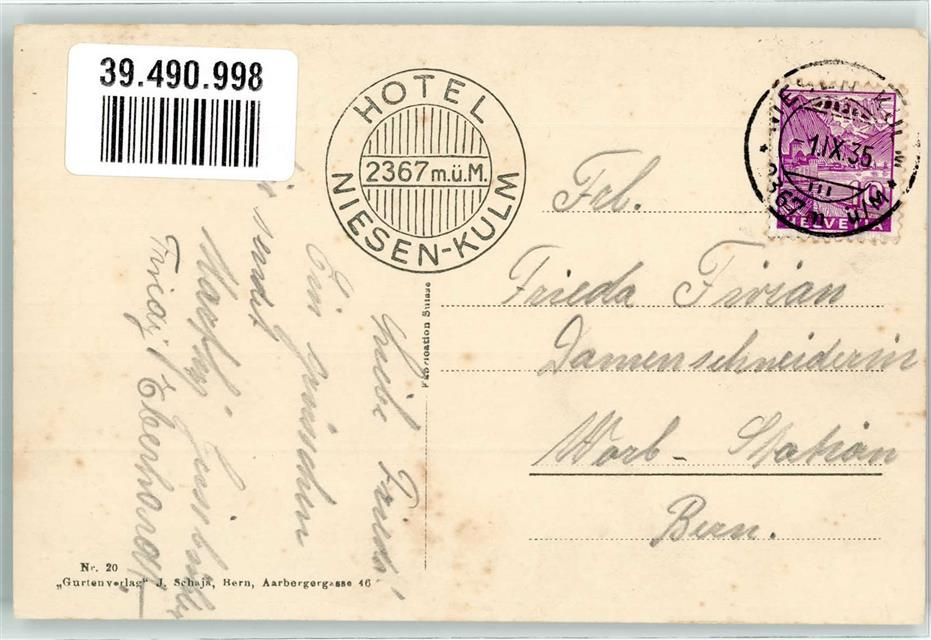 39.490.998
HOTEL
2367 m.ü.M.
NIESEN-KULM
NIESEN KULM
-1.IX.35
2367 m ü M
HELVETIA
Frl.
Frieda Tirian
Damenschneiderin
Worb - Station
Bern.
Fabrication Suisse
Liebe Frieda!
Ein
sendet
Eberhardt
Nr. 20
„Gurtenverlag" J. Schaja, Bern, Aarbergergasse 46